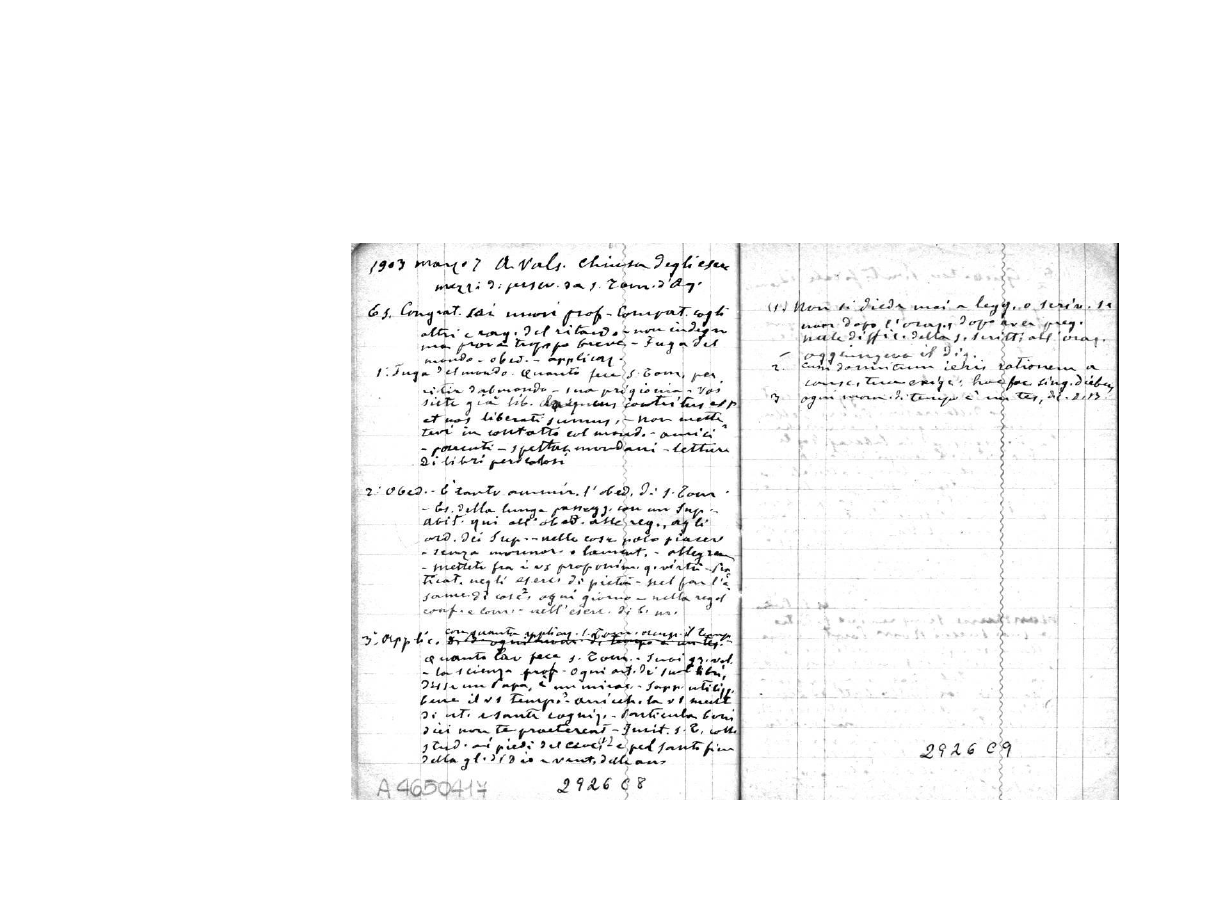 1903 marzo 7 A Vals. Chiusa degli eser
mezzi di persev. da s. Tom. d'Aq.
Es. Congrat. sui nuovi prof - Compat. cogli
altri e rag. del ritardo - non indegn
ma prova troppo breve - Fuga del
mondo - obed. - applicaz.
1. Fuga del mondo. Quanto fece s. Tom. per
dal mondo - sua prigionia - Voi
siete già lib. laqueus contritus est
et nos liberati sumus, - non mette
tevi in contatto col mondo - amici
- parenti - spettac. mondani - letture
di libri pericolosi
2. Obed. - È tanto ammir. l'obed. di s. Tom.
- Es. della lunga passegg. con un sup -
abit. qui all'obed. alle reg., agli
ord. dei Sup. - nelle cose
- senza mormor. o lament. - allegram
- mettete fra i vs proponim. q. virtù - Pra
ticat. negli eserc. di pietà - nel far l'e
same di cosc. ogni giorno - nella regol
conf. e com. - nell'eserc. di b.
3. Applic. con quanta applicaz. s. Tom. occup. il temp
Quanto lav fece s. Tom. - Suoi vol.
- la scienza prof. ogni art. di suoi libri,
disse un Papa, è un mirac -
bene il vs tempo - arricch. la vs mente
di ut. e sante cogniz. - Particula boni
diei non te praetereat - Imit. s. T. nello
stud. ai piedi del croc. e pel santo fine
della gl. di Dio e vant. delle an
A 4650417
2926 C8
(1) Non si diede mai a legg. o scriv. se
non dopo l'oraz., dopo aver preg.
nelle diffic. della s. scritt. all'oraz.
aggiungeva il dig.
2. rationem a
sing. diebus
3 ogni mom. di tempo è un tes,
2926 C9